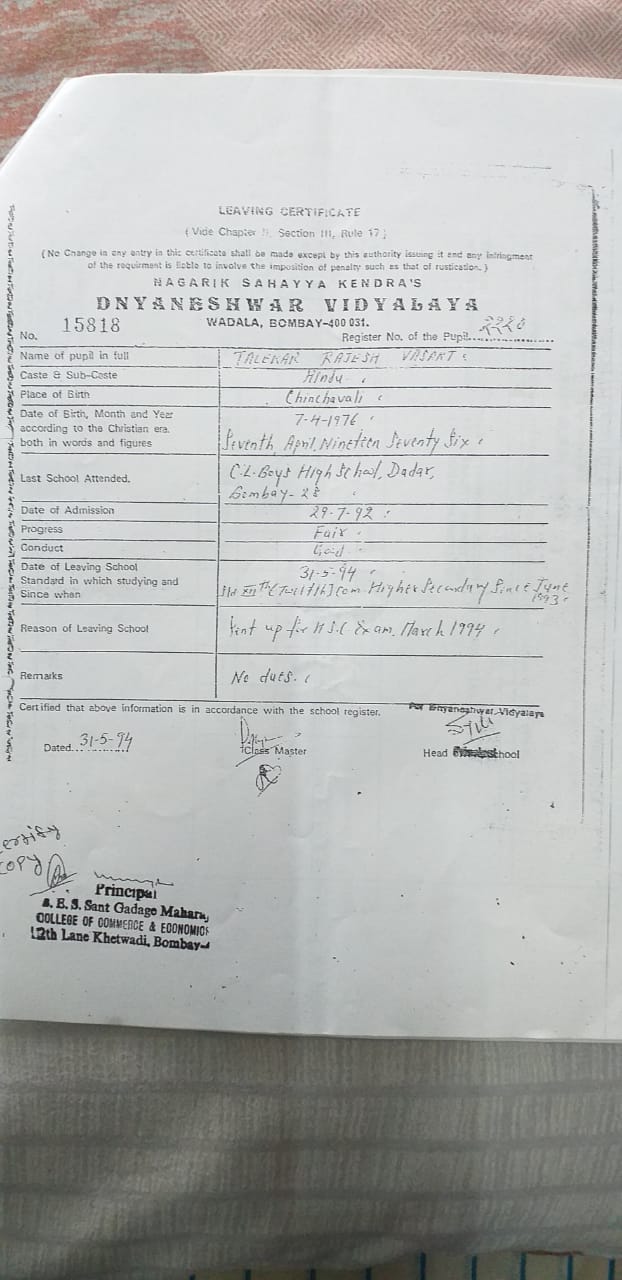 LEAVING CERTIFICATE
(Vide Chapter II, Section III, Rule 17)
(No Change in any entry in this certificate shall be made except by this authority issuing it and any infringment
of the requirment is liable to involve the imposition of penalty such as that of rustication.)
NAGARIK SAHAYYA KENDRA'S
DNYANESHWAR VIDYALAYA
WADALA, BOMBAY-400 031.
No. 15818
Register No. of the Pupil
Name of pupil in full TALEKAR RAJESH VASANT
Caste & Sub-Caste Hindu
Place of Birth Chinchavali
Date of Birth, Month and Year 7-4-1976
according to the Christian era.
both in words and figures Seventh, April, Nineteen Seventy Six
Last School Attended. C.L. Boys High School, Dadar,
Bombay-28
Date of Admission 29-7-92
Progress Fair
Conduct Good
Date of Leaving School 31-5-94
Standard in which studying and Std XIIth (Twelfth) Com. Higher Secondary Since June
Since when 1993
Reason of Leaving School Sent up for H.S.C Exam. March 1994
Remarks No dues.
Certified that above information is in accordance with the school register.
For Dnyaneshwar Vidyalaya
Dated 31-5-94
Class Master
Head School
Certify
COPY
Principal
Sant Gadage Mahara
COLLEGE OF COMMERCE & ECONOMICS
12th Lane Khetwadi, Bombay-4